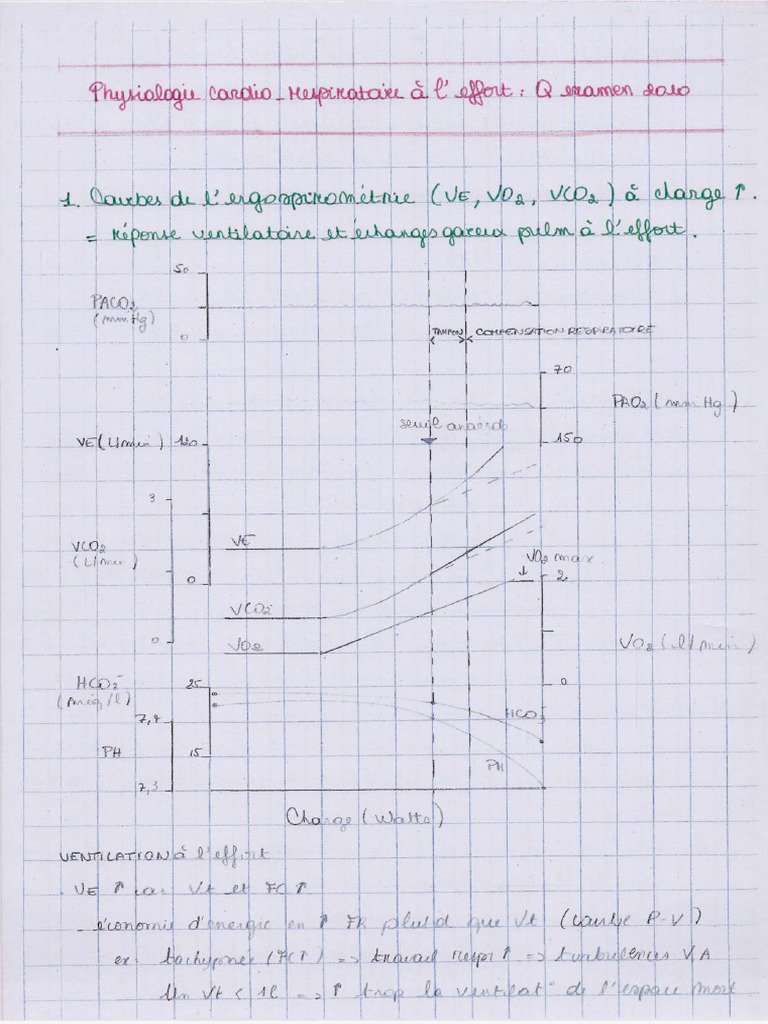 Physiologie cardio-respiratoire à l'effort : Q examen 2010
1. Courbes de l'ergospirométrie (VE, VO2, VCO2) à charge ↑.
= réponse ventilatoire et échanges gazeux pulm à l'effort.
50
PACO2
(mmHg)
0
TAMPON COMPENSATION RESPIRATOIRE
70
PAO2 (mmHg)
seuil anaérob
VE (L/min) 120
150
3
VE
VCO2
(L/min)
VO2 max
0
2
VCO2
0
VO2
VO2 (l/min)
HCO3-
(méq/l)
25
0
7,4
HCO3
PH
15
PH
7,3
Charge (Watts)
VENTILATION à l'effort
VE ↑ car Vt et FC ↑
économie d'énergie en ↑ FR plutôt que Vt (courbe P-V)
ex: tachypnée (FC↑) => travail respi ↑ => turbulences VA
Un Vt < 1l => ↑ trop la ventilat° de l'espace mort